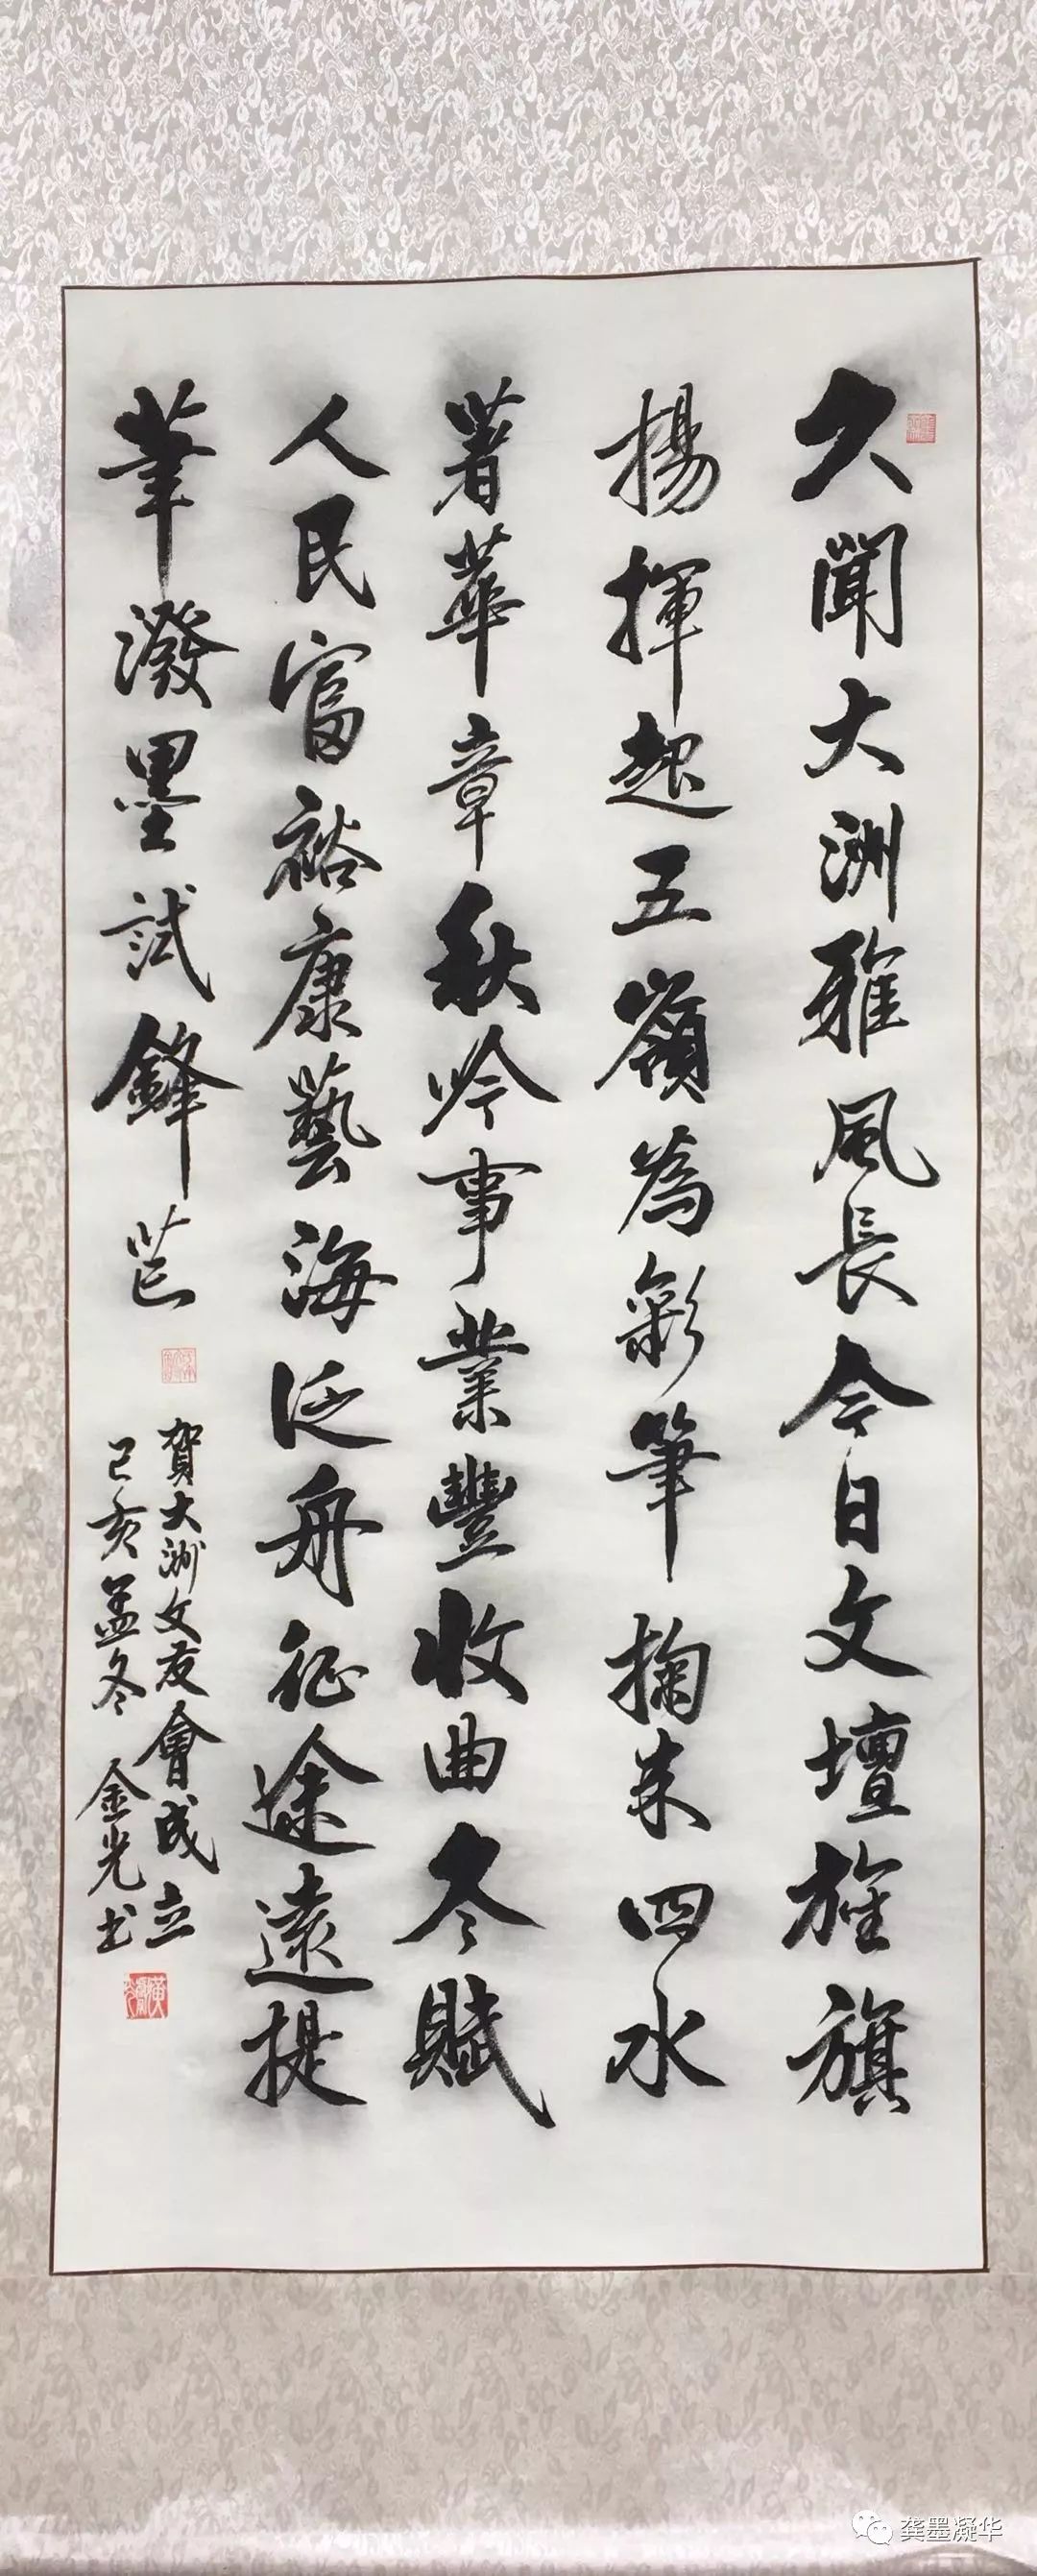 久聞大洲雅風長今日文壇旌旗
揚揮起五嶺為彩筆掬来四水
著華章秋吟事業豐收曲冬賦
人民富裕康藝海泛舟征途遠提
筆潑墨試鋒芒
賀大洲文友會成立
己亥孟冬 金光书
龚墨凝华